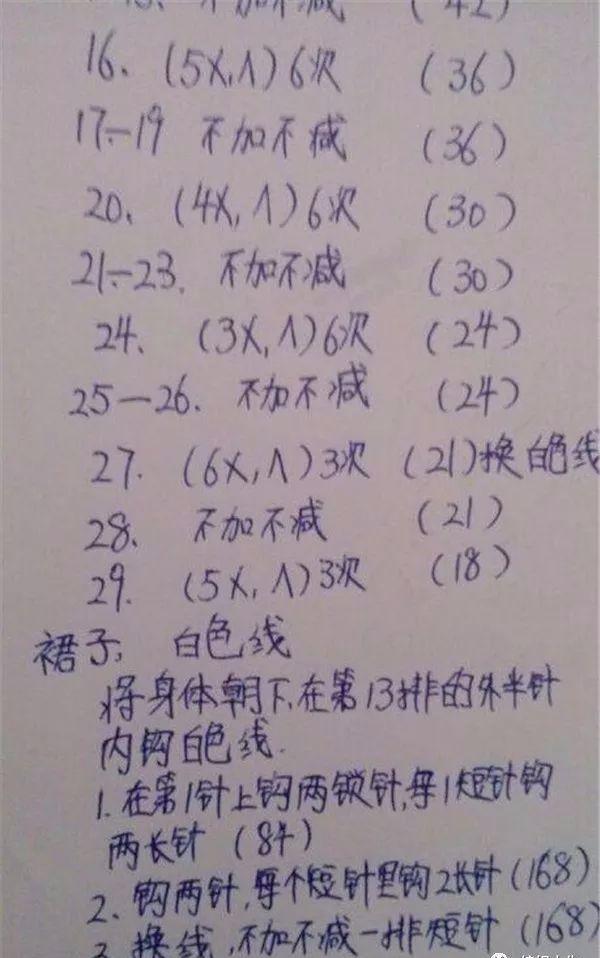 不加不减 (42)
16、(5X,Λ)6次 (36)
17-19 不加不减 (36)
20、(4X,Λ)6次 (30)
21-23. 不加不减 (30)
24、(3X,Λ)6次 (24)
25-26. 不加不减 (24)
27. (6X,Λ)3次 (21)换白色线
28、不加不减 (21)
29. (5X,Λ)3次 (18)
裙子: 白色线
将身体朝下,在第13排的外半针
内钩白色线.
1. 在第1针上钩两锁针,每1短针钩
两长针 (84)
2、钩两针,每个短针里钩2长针(168)
3 换线,不加不减一排短针(168)